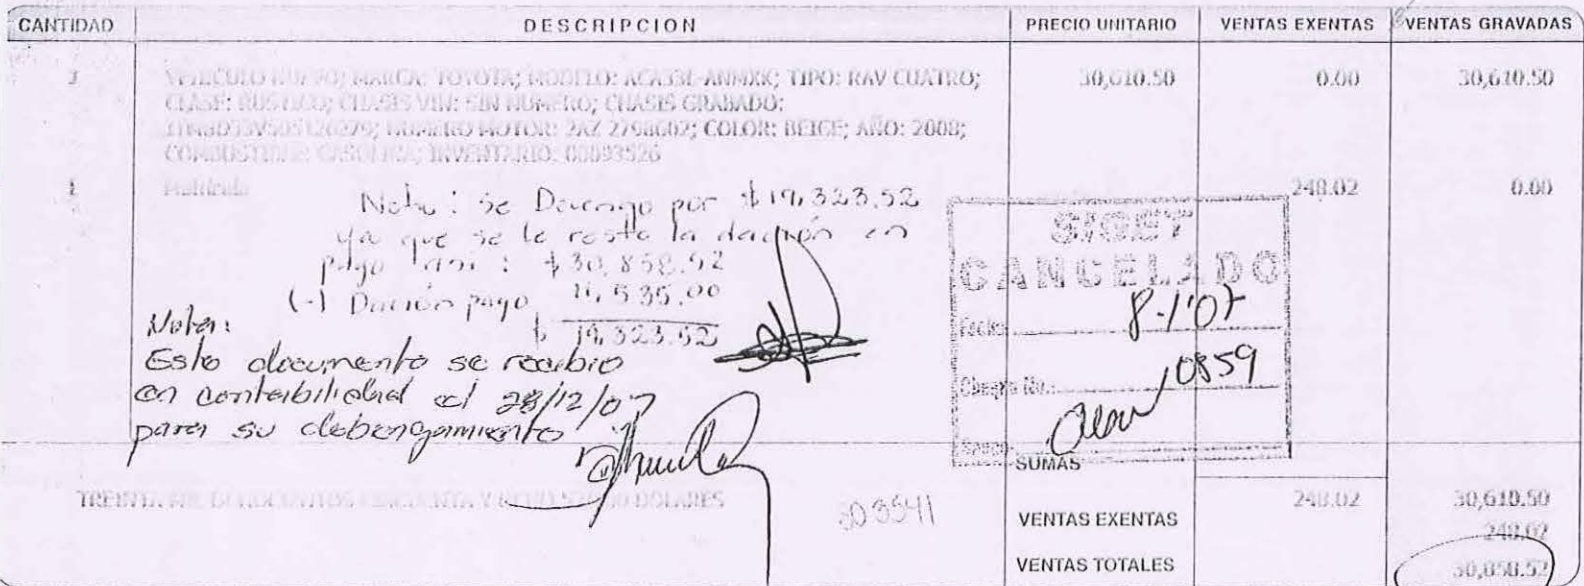 CANTIDAD DESCRIPCION PRECIO UNITARIO VENTAS EXENTAS VENTAS GRAVADAS
VEHICULO NUEVO; MARCA: TOYOTA; MODELO: TIPO: RAV CUATRO; 30,610.50 0.00 30,610.50
CLASE: RUSTICO; CHASIS VIN: SIN NUMERO; CHASIS GRABADO:
NUMERO MOTOR: 2AZ COLOR: BEIGE; AÑO: 2008;
COMBUSTIBLE: GASOLINA; INVENTARIO: 00093526
1 Matrícula 248.02 0.00
Nota: se Devengo por $19,323.52
ya que se le resto la dación en
pago $30,858.52
(-) Dación pago 11,535.00
$ 19,323.52
Nota:
Este documento se recibio
en contabilidad el 28/12/07
para su debengamiento
SIGET
CANCELADO
Fecha: 8-1'07
Cheque No.: 10859
SUMAS
TREINTA MIL OCHOCIENTOS CINCUENTA Y OCHO 52/100 DOLARES 248.02 30,610.50
VENTAS EXENTAS 248.02
VENTAS TOTALES 30,858.52